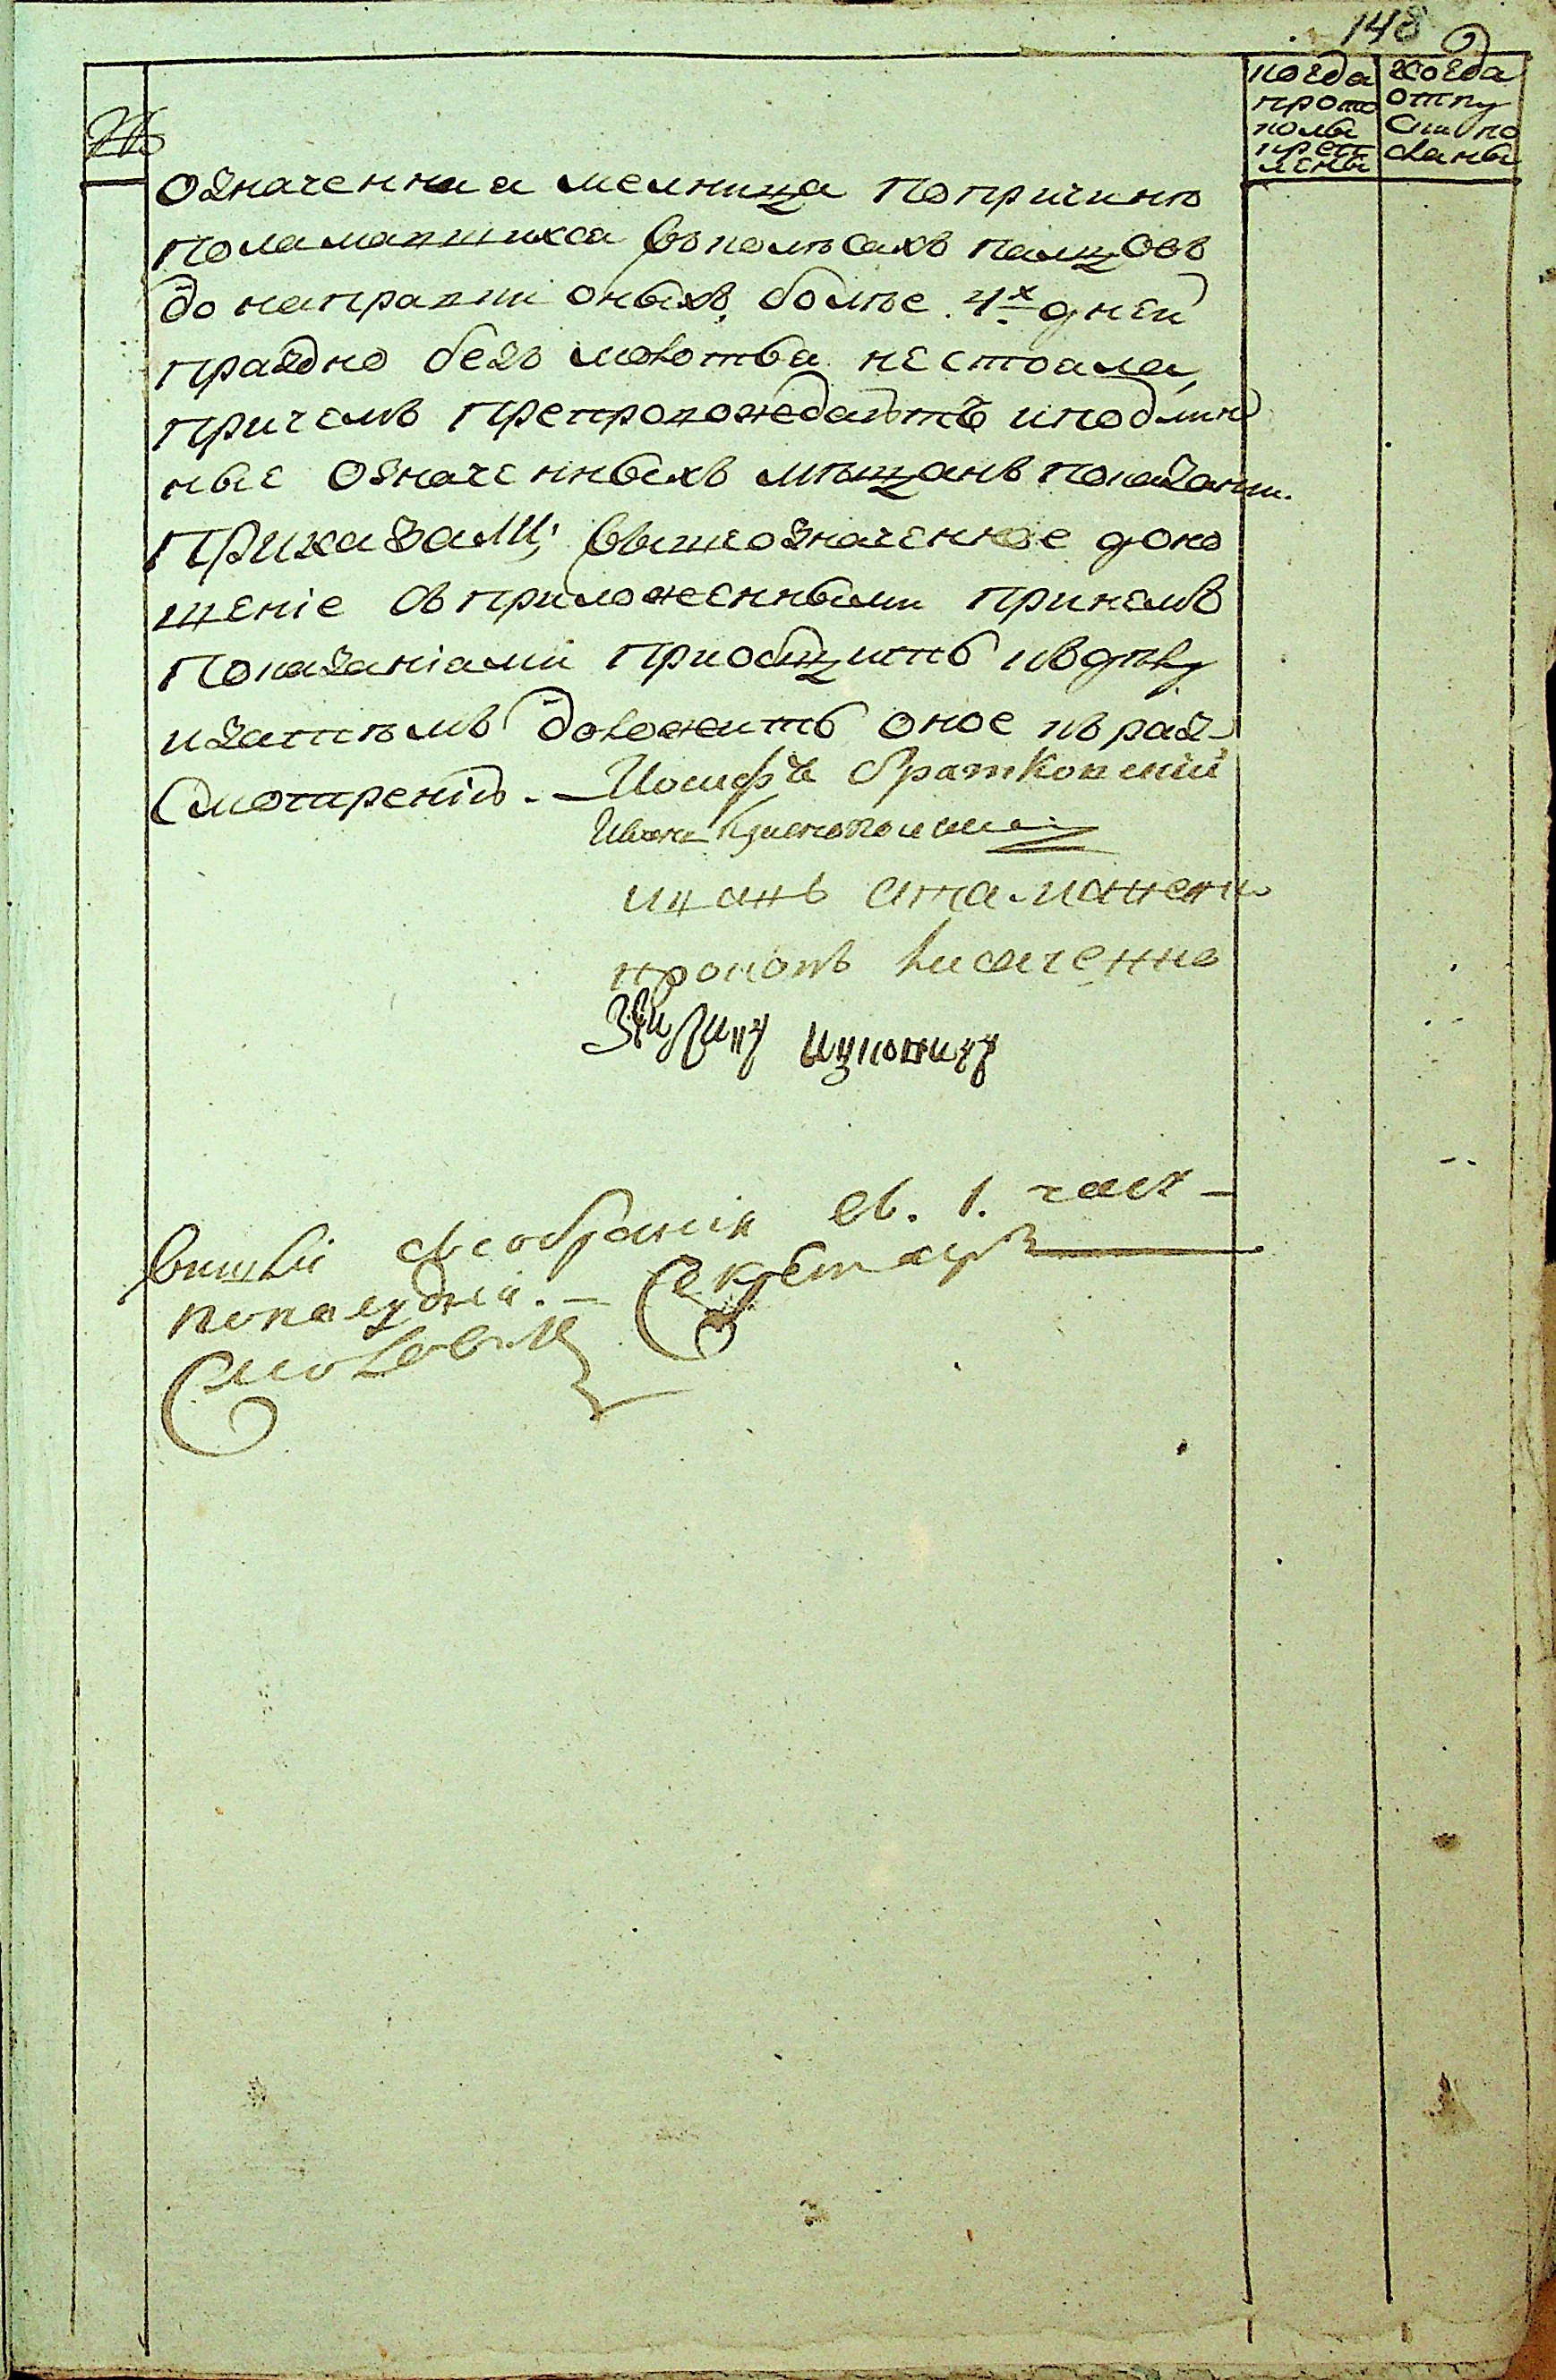 148
№
когда
прото
колы
крепт
лены
когда
отпу
ски по
сланы
означенная мелница попричинѣ
поламавшихся въколѣсахъ палцовъ
до направки оныхъ, болѣе 4х дней
праздно безъ молотва нестояла,
причемъ препровождаютъ иподлин
ные означенныхъ мѣщанъ показании.
Приказали; вышеозначенное доно
шеніе съприложенными принемъ
показаніами приобщить кделу
изатѣмъ доложить оное кѣраз
смотренію. — Иосифъ Братковскій
Иванъ
иванъ атаманенко
прокопъ Лисаченко
вишли съсобранія въ. 1. часу
пополудни. — Секретарь